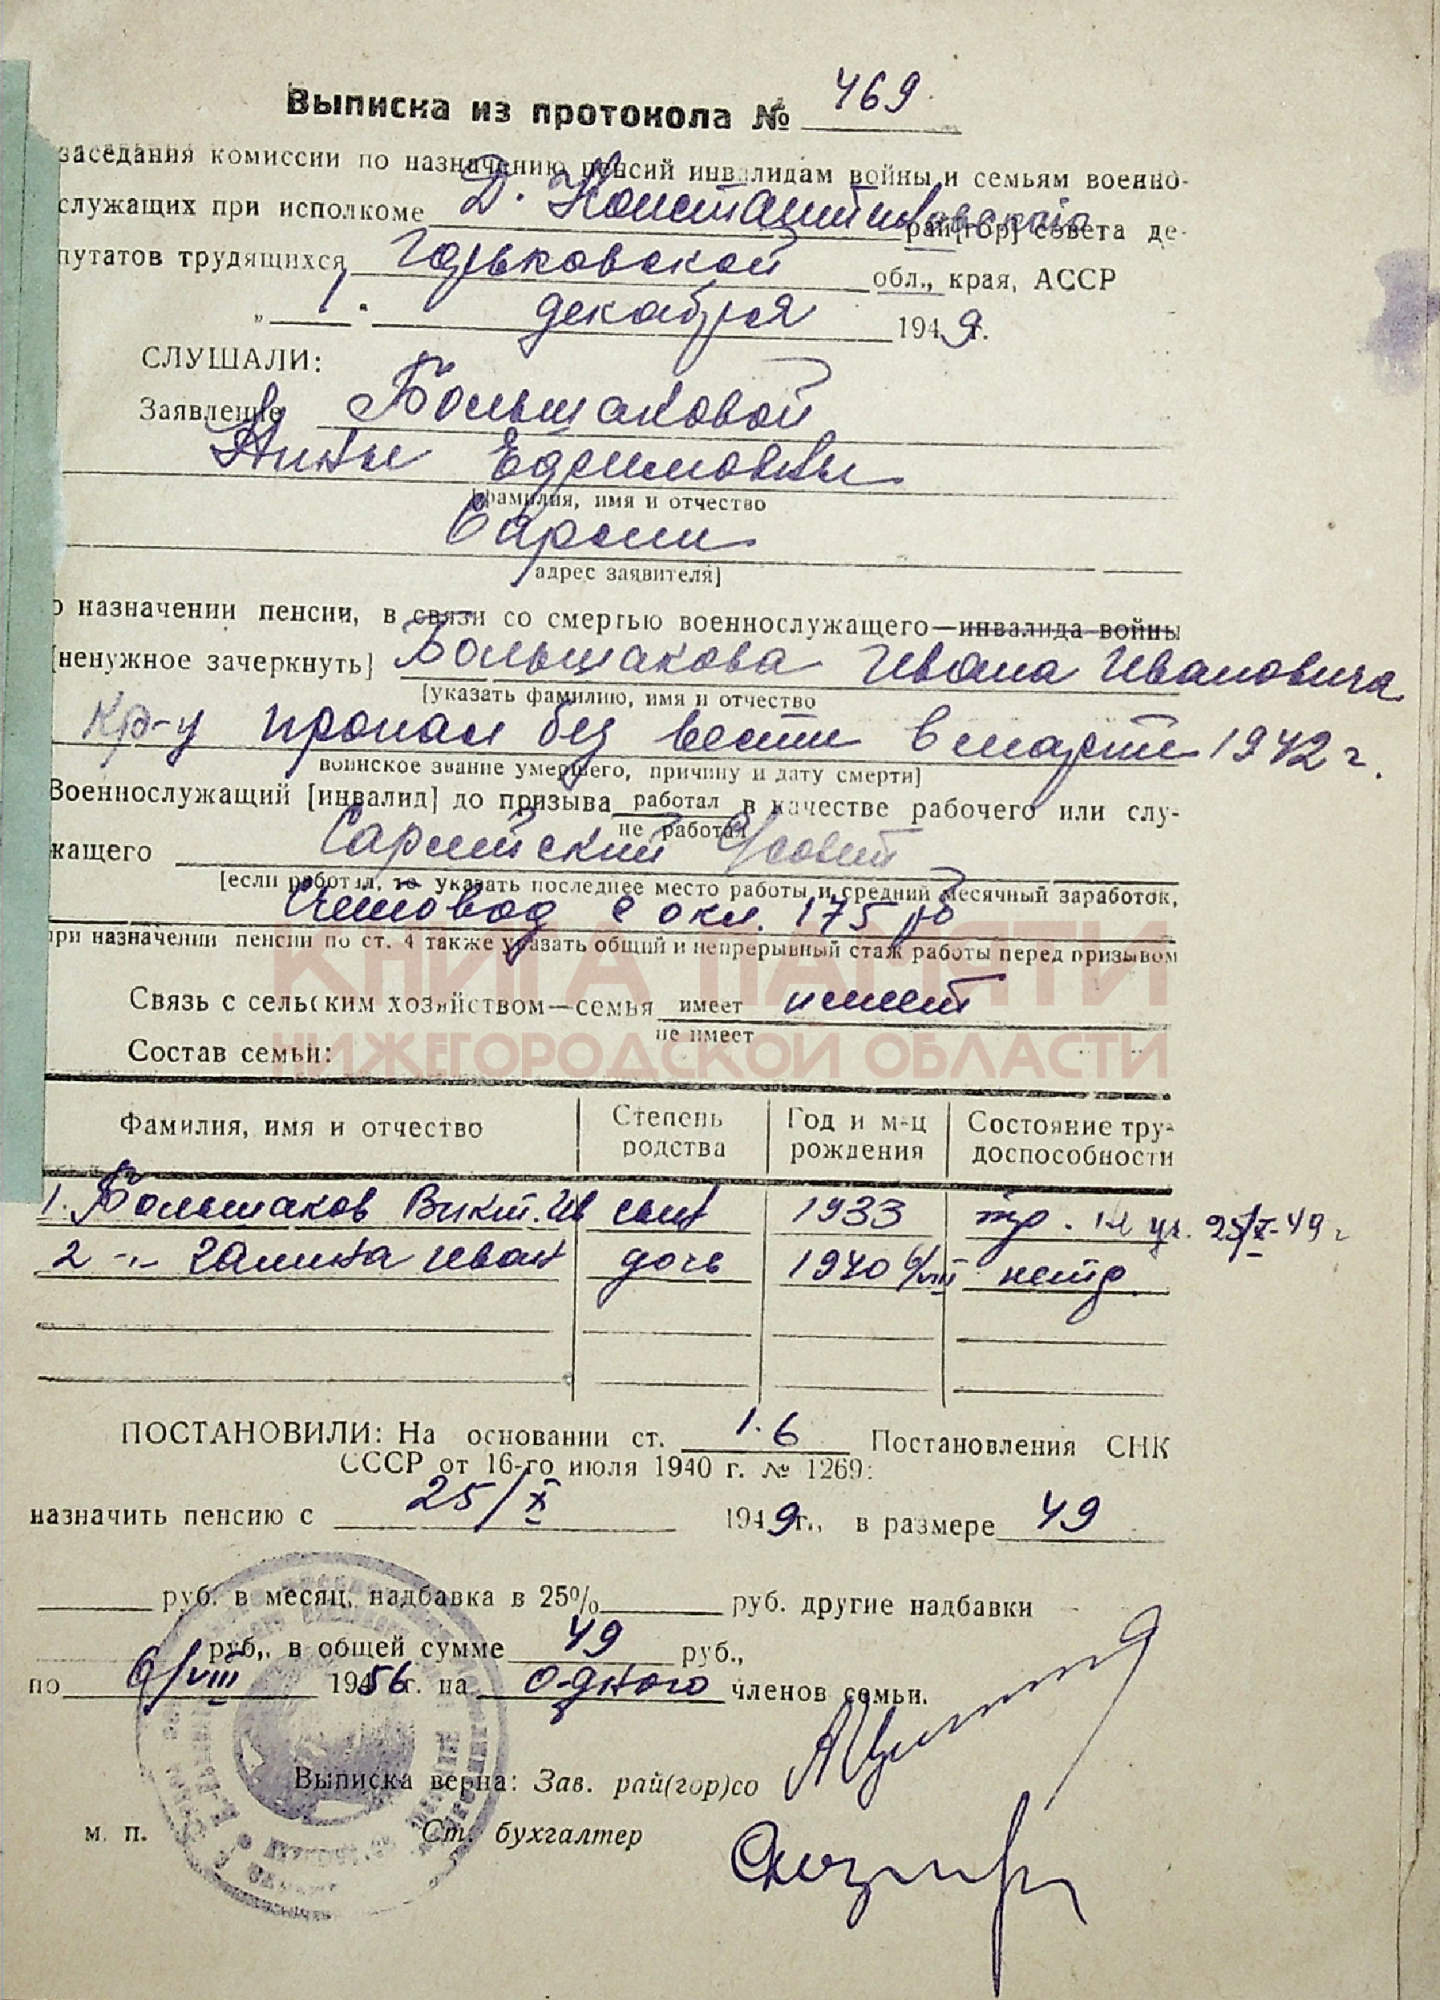 Выписка из протокола № 469
заседания комиссии по назначению пенсий инвалидам войны и семьям военно-
служащих при исполкоме Д. Константиновского рай[гор] совета де-
путатов трудящихся Горьковской обл., края, АССР
„ 1 " декабря 1949 г.
СЛУШАЛИ:
Заявление Большаковой
Нины Ефимовны
[фамилия, имя и отчество
Сарлеи
адрес заявителя]
о назначении пенсии, в связи со смертью военнослужащего—инвалида войны
[ненужное зачеркнуть] Большакова Ивана Ивановича
[указать фамилию, имя и отчество
Кр-ц пропал без вести в марте 1942 г.
воинское звание умершего, причину и дату смерти]
Военнослужащий [инвалид] до призыва работал в качестве рабочего или слу-
не работал
жащего Сарлейский с/совет
[если работал, то указать последнее место работы и средний месячный заработок,
с окл. 175 рб
при назначении пенсии по ст. 4 также указать общий и непрерывный стаж работы перед призывом
КНИГА ПАМЯТИ
Связь с сельским хозяйством—семья имеет имеет
не имеет
НИЖЕГОРОДСКОЙ ОБЛАСТИ
Состав семьи:
Фамилия, имя и отчество Степень родства Год и м-ц рождения Состояние тру-доспособности
1. Большаков Викт. Ив сын 1933 тр. 25/X-49 г
2 -"- Галина Иван дочь 1940 6/VIII нетр.
ПОСТАНОВИЛИ: На основании ст. 1.6 Постановления СНК
СССР от 16-го июля 1940 г. № 1269:
назначить пенсию с 25/X 1949 г., в размере 49
руб. в месяц, надбавка в 25% руб. другие надбавки
руб., в общей сумме 49 руб.,
по 6/VIII 1956 г. на одного членов семьи.
Выписка верна: Зав. рай(гор)со
м. п. Ст. бухгалтер